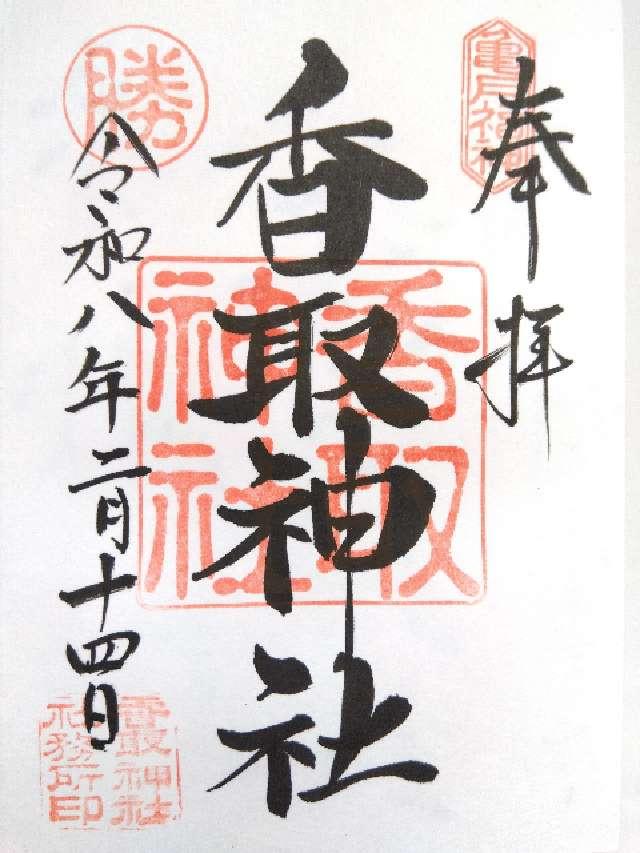 奉拝
亀戸神社
香取神社
香取神社
勝
令和八年二月十四日
香取神社
社務所印